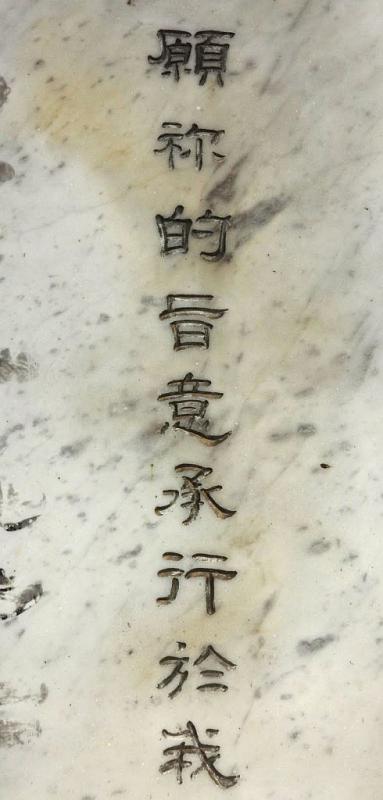 願祢的旨意承行於我